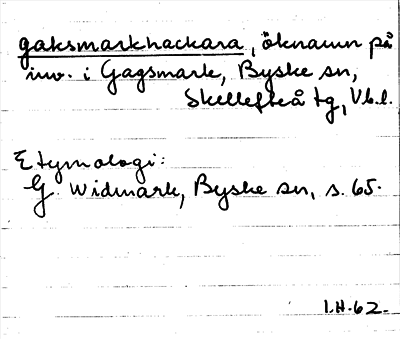 gaksmarkhackara, öknamn på
inv. i Gagsmark, Byske sn,
Skellefteå tg, Vb.l.
Etymologi:
G. Widmark, Byske sn, s. 65.
I.H. 62.